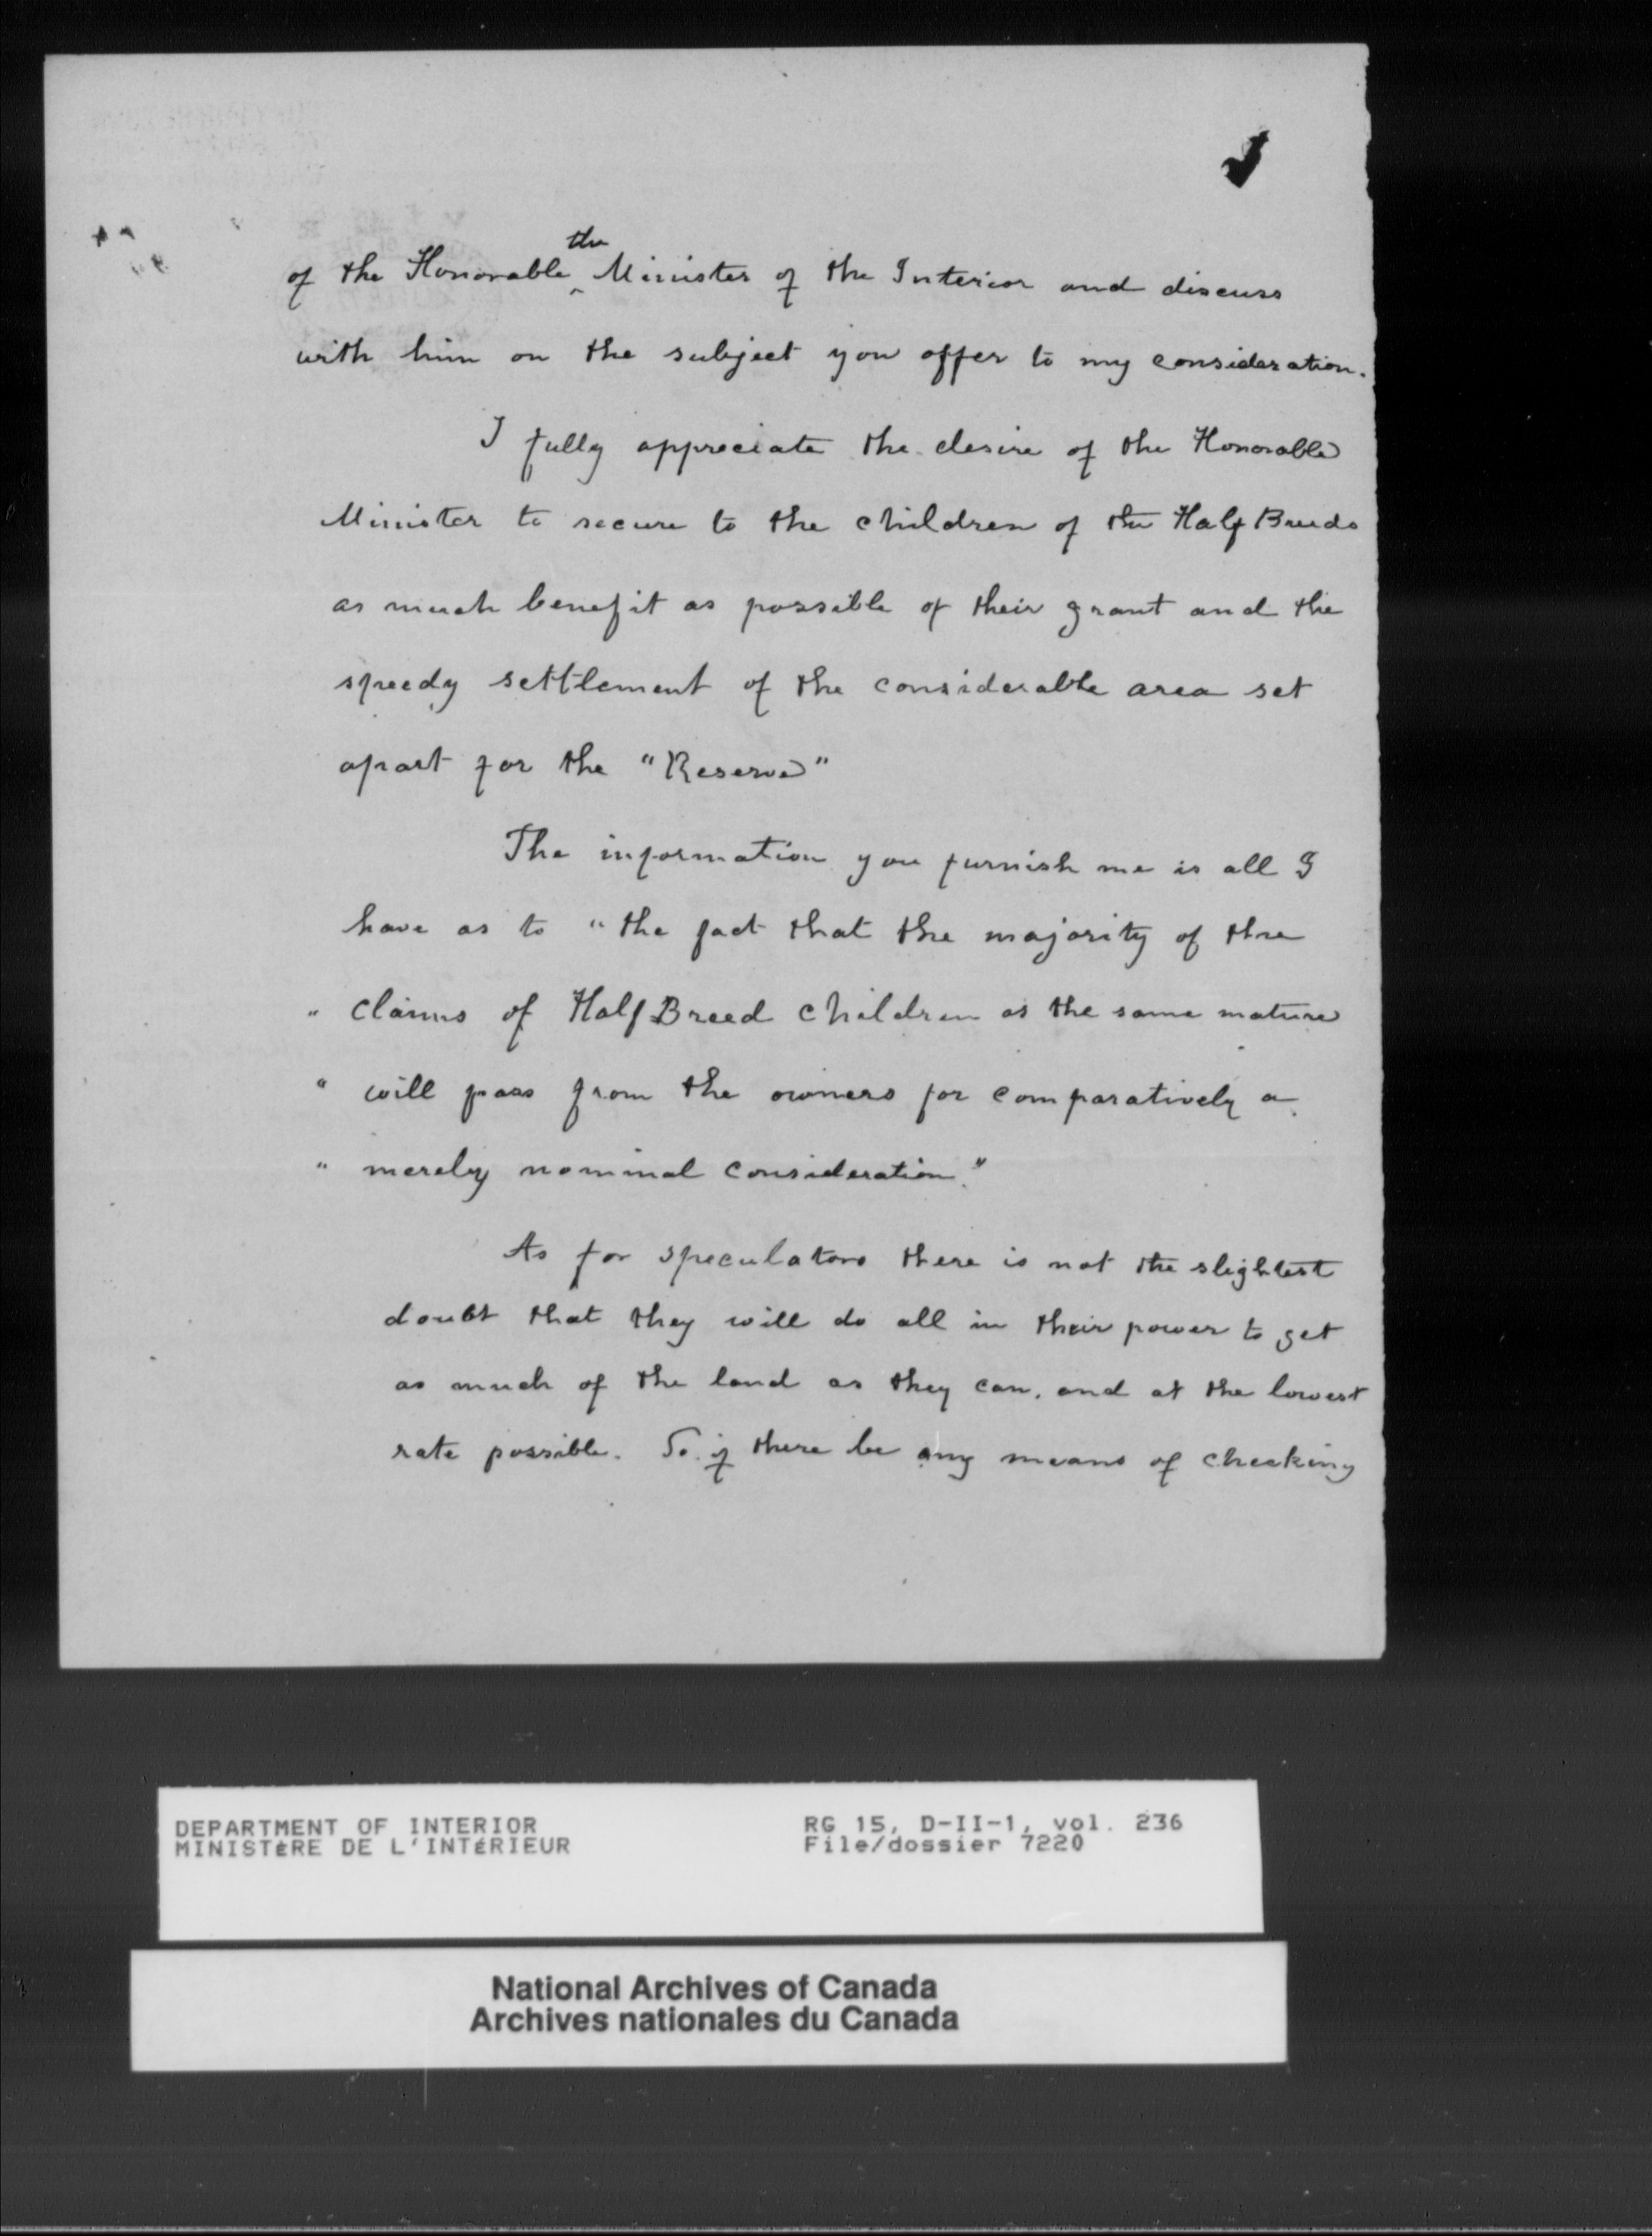 the
of the Honorable ^ Minister of the Interior and discuss
with him on the subject you offer to my consideration.
I fully appreciate the desire of the Honorable
Minister to secure to the children of the Half Breeds
as much benefit as possible of their grant and the
speedy settlement of the considerable area set
apart for the "Reserve"
The information you furnish me is all I
have as to "the fact that the majority of the
" claims of Half Breed children as the same mature
" will pass from the owners for comparatively a
" merely nominal consideration."
As for speculators there is not the slightest
doubt that they will do all in their power to get
as much of the land as they can, and at the lowest
rate possible. So if there be any means of checking
DEPARTMENT OF INTERIOR RG 15, D-II-1, vol. 236
MINISTÈRE DE L'INTÉRIEUR File/dossier 7220
National Archives of Canada
Archives nationales du Canada